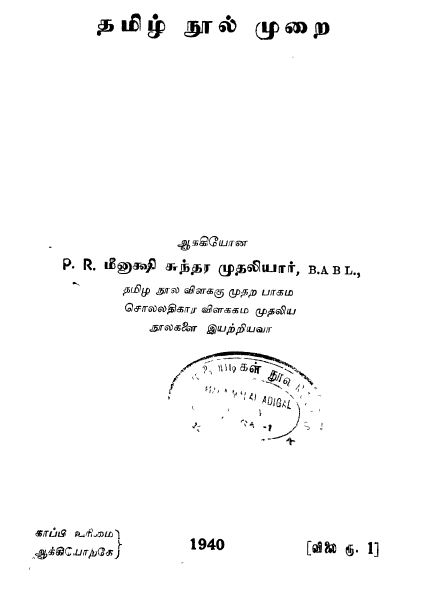 தமிழ் நூல் முறை
ஆக்கியோன
P. R. மீனாக்ஷி சுந்தர முதலியார், B.A B L.,
தமிழ நூல விளக்கு முதற பாகம
சொலலதிகார விளககம முதலிய
நூலகளை இயற்றியவா
அடிகள் நூல
ADIGAL
காப்பி உரிமை
ஆக்கியோற்கே
1940
[விலை ரூ. 1]